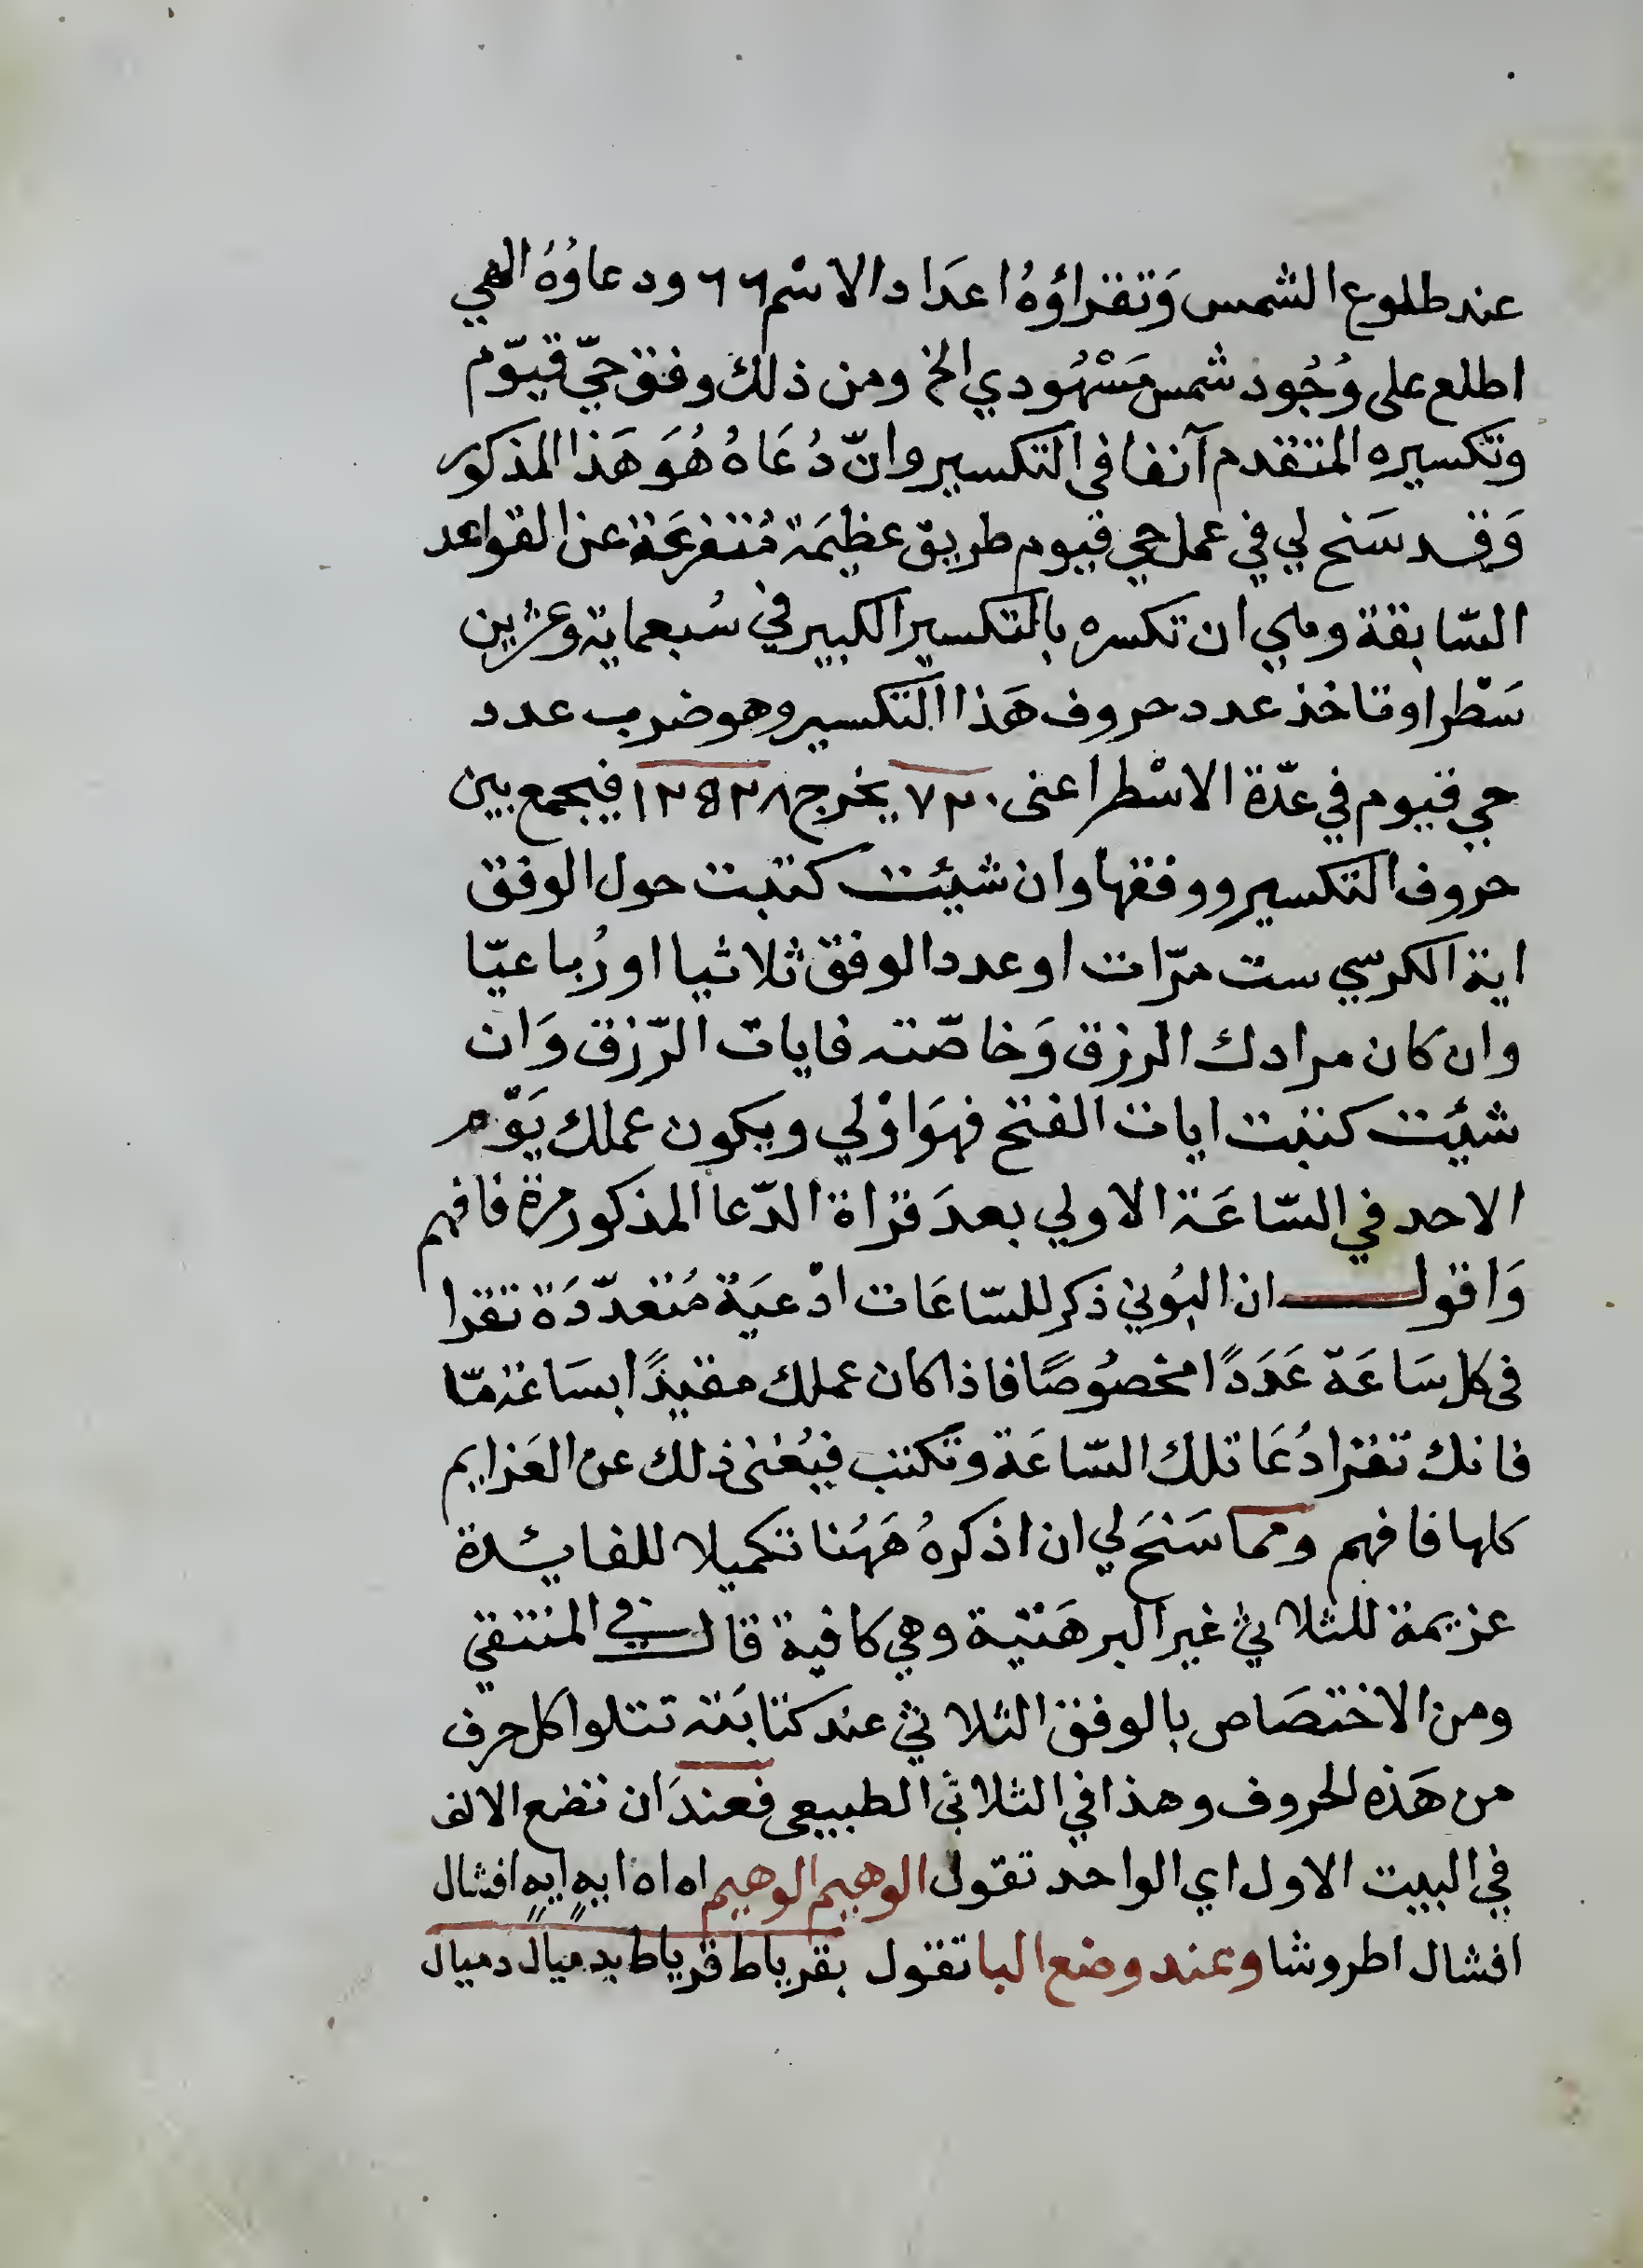 عند طلوع الشمس وَتقراؤهُ اعدَاد الاسْم ٦٦ ودعاؤهُ الهي
اطلع على وُجُود شمس مَشْهُودي الخ ومن ذلك وفق حيّ قيّوم
وتكسيره المتقدم آنفا في التكسير وانّ دُعَاهُ هُوَ هَذا المذكور
وَقد سَنح لي في عمل حي قيوم طريق عظيمَة مُتفرعَة عن القواعد
السّابقة وهي ان تكسره بالتكسير الكبير في سُبعماية وعشرين
سَطْرا وتاخذ عدد حروف هَذا التكسير وهو ضرب عدد
حي قيوم في عدّة الاسْطر اعنى ٧٢٠ يخرج فيجمع بين
حروف التكسير ووفقها وان شيئت كتبت حول الوفق
اية الكرسي ست مرّات او عدد الوفق ثلاثيا او رُباعيّا
وان كان مرادك الرزق وَخاصّته فايات الرّزق وَان
شئيت كتبت ايات الفتح فهوَ اوْلي ويكون عملك يَوْم
الاحد في السّاعَة الاولي بعدَ قراة الدّعا المذكور مرة فافهم
وَاقول ان البُوني ذكر للسّاعَات ادْعيَة مُتعدّدَة تقرا
في كل سَاعَة عَدَدًا مخصُوصًا فاذا كان عملك مقيدًا بسَاعَة مّا
فانك تقرا دُعَا تلك السّاعَة وتكتب فيُغنى ذلك عن العَزايم
كلها فافهم ومما سَنحَ لي ان اذكرهُ هَهُنا تكميلا للفايئدة
عزيمة للثلاثي غير البرهَتية وهي كافية قال في المنتقي
ومن الاختصَاص بالوفق الثلاثي عند كتابَته تتلوا كل حرف
من هَذه الحروف وهذا في الثلاثي الطبيعى فعندَ ان تضع الالف
في البيت الاول اي الواحد تقول الوهيم الوهيم اه اه ايه ايه افشال
افشال اطروشا وعند وضع البا تقول بقرياط قرياط بدميال دميال